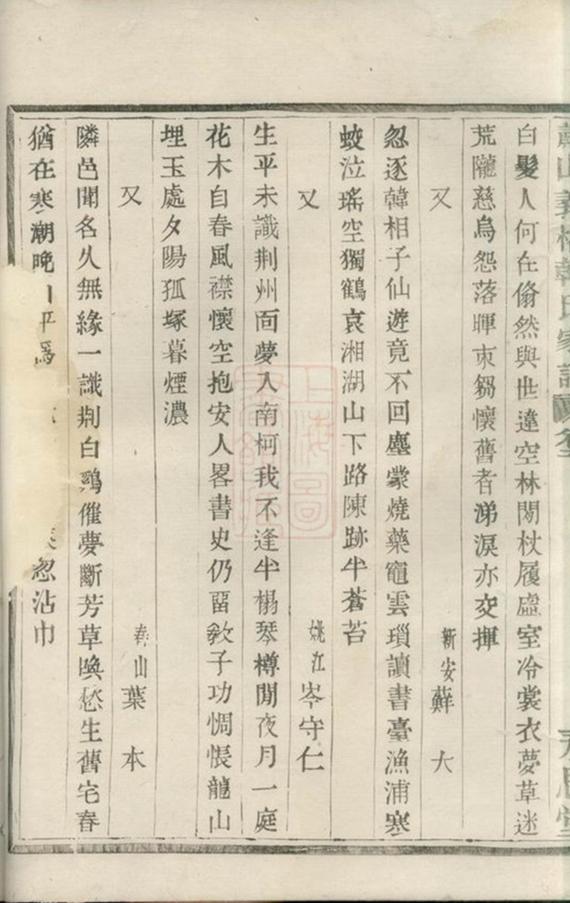 蕭山義橋韓氏家譜
白髮人何在翛然與世違空林閒杖履虛室冷裳衣夢草迷
荒隴慈烏怨落暉束芻懷舊者涕淚亦交揮
又 新安蘇大
忽逐韓相子仙遊竟不回塵蒙燒藥竈雲瑣讀書臺漁浦寒
蛟泣瑤空獨鶴哀湘湖山下路陳跡半蒼苔
又 姚江岑守仁
生平未識荆州面夢入南柯我不逢半榻琴樽閒夜月一庭
花木自春風襟懷空抱安人畧書史仍畱敎子功惆悵龍山
埋玉處夕陽孤塚暮煙濃
又 春山葉本
隣邑聞名久無緣一識荆白鷄催夢斷芳草喚愁生舊宅春
猶在寒潮晚 平爲 忽沾巾
上海圖